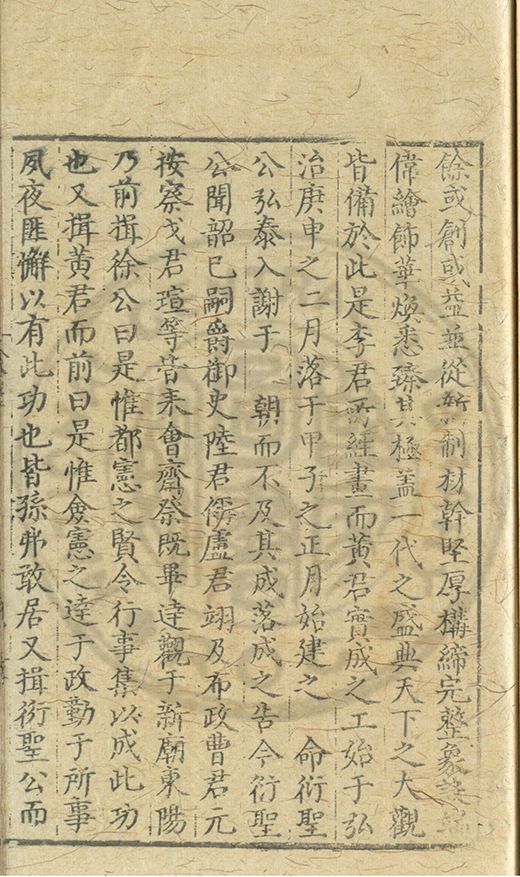 餘或創或葢並從新制材幹堅厚構締完整象設端
偉繪飾華煥悉臻其極盖一代之盛典天下之大觀
皆備於此是李君所經畫而黃君實成之工始于弘
治庚申之二月落于甲子之正月始建之 命衍聖
公弘泰入謝于 朝而不及其成落成之告今衍聖
公聞韶已嗣爵御史陸君偁盧君翊及布政曹君元
按察戈君瑄等皆来會齋祭既畢達觀于新廟東陽
乃前揖徐公曰是惟都憲之賢令行事集以成此功
也又揖黃君而前曰是惟僉憲之達于政勤于所事
夙夜匪懈以有此功也皆孫弗敢居又揖衍聖公而